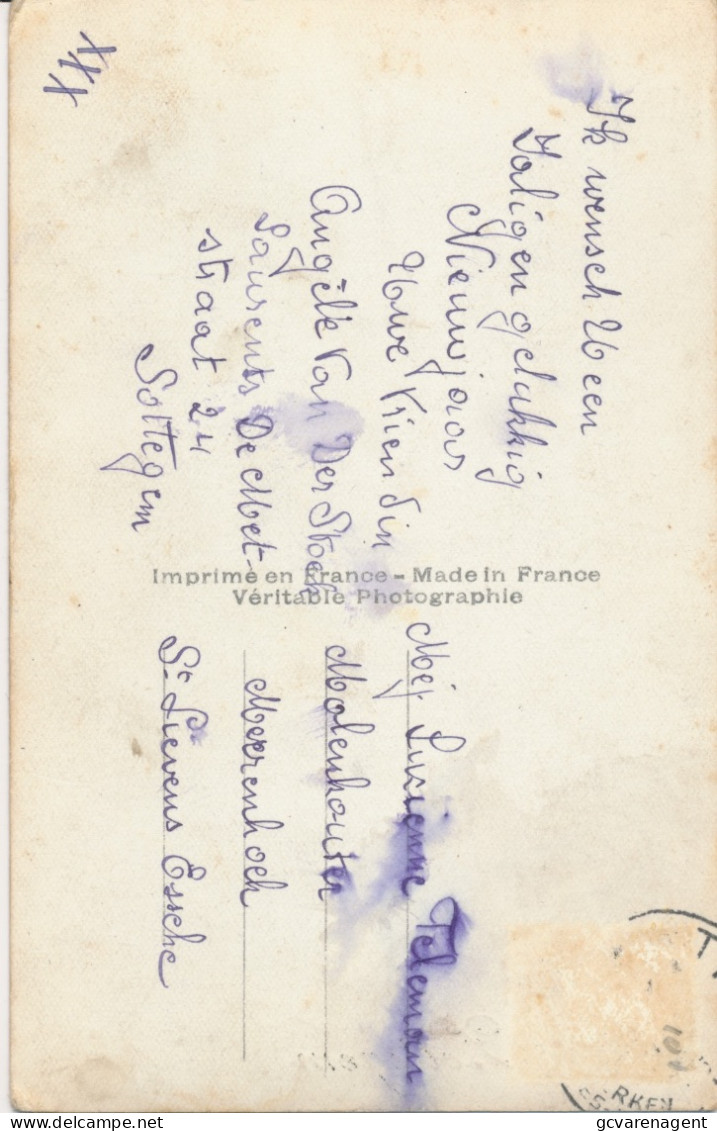 Ik wensch U een
Zalig en gelukkig
Nieuwjaar
Uwe Vriendin
Angèle Van Der Stock
Laurents De Met-
straat 24
Sottegem
XXX
Imprimé en France - Made in France
Véritable Photographie
Mej Lucienne Teleman
Molenhouter
Meerenhoek
St Lievens Essche
101
RKEN
gcvarenagent